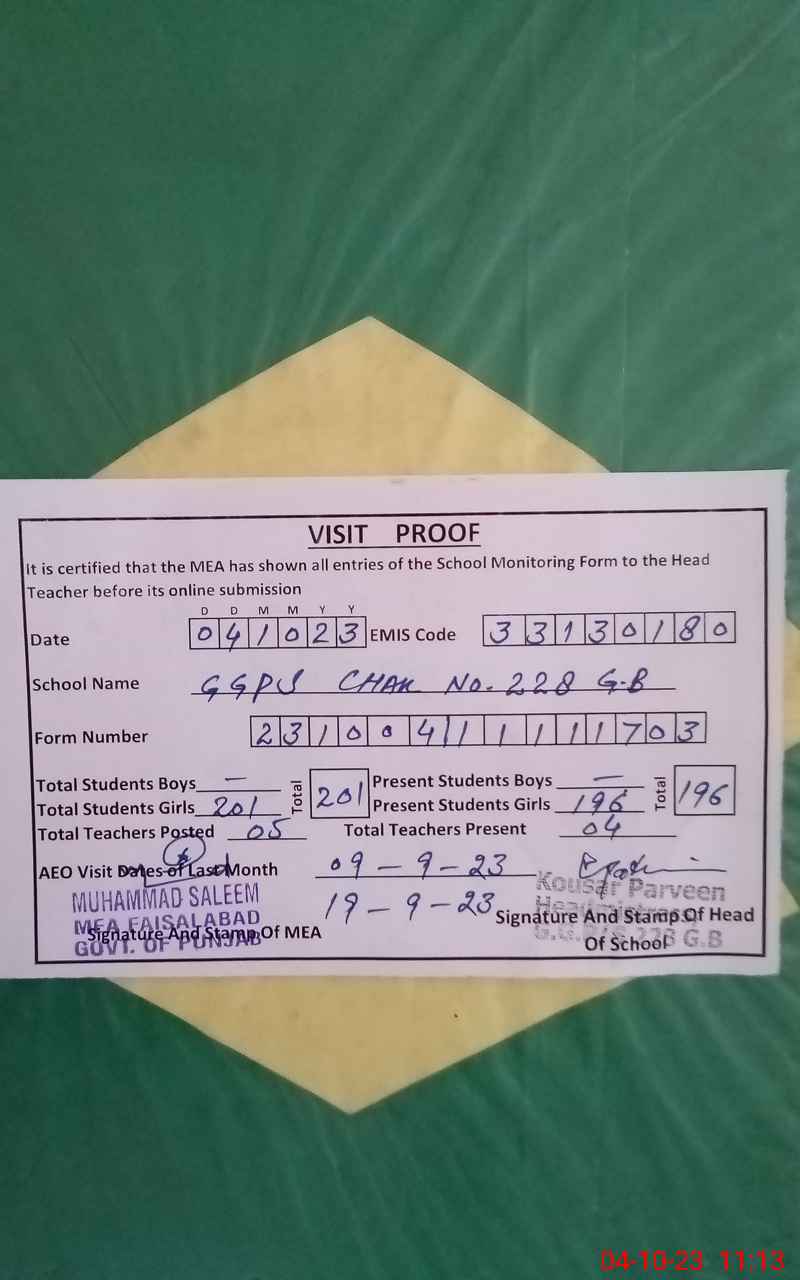 VISIT PROOF
It is certified that the MEA has shown all entries of the School Monitoring Form to the Head
Teacher before its online submission
D D M M Y Y
Date 041023 EMIS Code 33130180
School Name GGPS CHAK No. 228 G.B
Form Number 23100411111703
Total Students Boys — Total 201 Present Students Boys — Total 196
Total Students Girls 201 Present Students Girls 196
Total Teachers Posted 05 Total Teachers Present 04
AEO Visit Dates of Last Month 09-9-23
19-9-23
MUHAMMAD SALEEM
MEA FAISALABAD
GOVT. OF PUNJAB
Signature And Stamp Of MEA
Kousar Parveen
228 G.B
Signature And Stamp Of Head
Of School
04-10-23 11:13